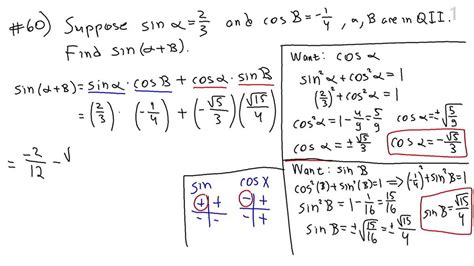 #60) Suppose sin α = 2/3 and cos B = -1/4, α, B are in QII.
Find sin(α+B)
sin(α+B) = sin α · cos B + cos α · sin B
= (2/3) · (-1/4) + (-√5/3)(√15/4)
= -2/12 - √
sin cos X
+ + - +
- - - +
Want: cos α
sin²α + cos²α = 1
(2/3)² + cos²α = 1
cos²α = 1 - 4/9 = 5/9 cos α = ±√5/9
cos α = ± √5/3 cos α = -√5/3
Want: sin B
cos²(B) + sin²(B) = 1 ⟹ (-1/4)² + sin²B = 1
sin²B = 1 - 1/16 = 15/16
sin B = ±√15/16 = ± √15/4 sin B = √15/4